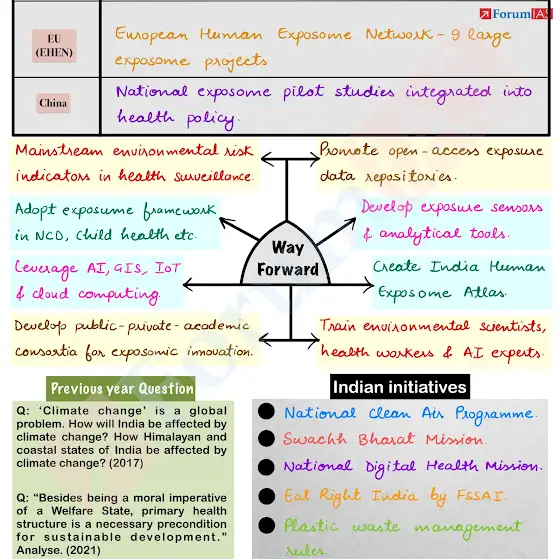 ForumIAS
EU
(EHEN)
European Human Exposome Network - 9 large
exposome projects
China
National exposome pilot studies integrated into
health policy.
Mainstream environmental risk
indicators in health surveillance.
Promote open-access exposure
data repositories.
Adopt exposume framework
in NCD, Child health etc.
Develop exposure sensors
& analytical tools.
Way
Forward
Leverage AI, GIS, IoT
& cloud computing.
Create India Human
Exposome Atlas.
Develop public-private-academic
consortia for exposomic innovation.
Train environmental scientists,
health workers & AI experts.
Previous year Question
Q: ‘Climate change’ is a global
problem. How will India be affected by
climate change? How Himalayan and
coastal states of India be affected by
climate change? (2017)
Q: “Besides being a moral imperative
of a Welfare State, primary health
structure is a necessary precondition
for sustainable development.”
Analyse. (2021)
Indian initiatives
National Clean Air Programme.
Swachh Bharat Mission.
National Digital Health Mission.
Eat Right India by FSSAI.
Plastic waste management
rules